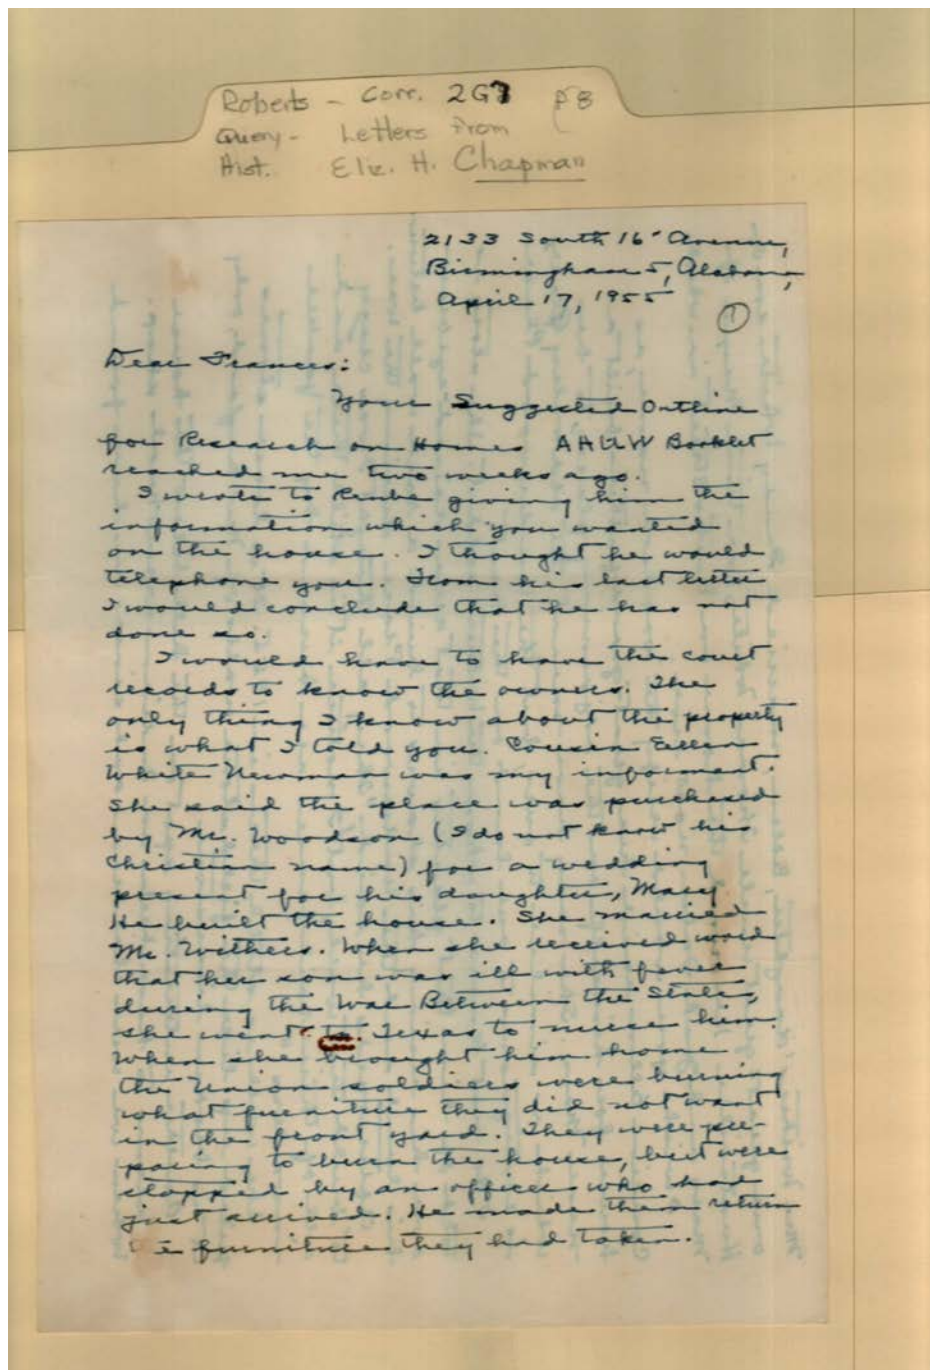 Roberts - Corr. 2G7 p8
Query - Letters From
Hist. Eliz. H. Chapman
2133 South 16" Avenue,
Birmingham 5, Alabama,
April 17, 1955
1
Dear Frances:
Your Suggested Outline
for Research on Homes AHAUW Booklet
reached me two weeks ago.
I wrote to Reuben giving him the
information which you wanted
on the house. I thought he would
telephone you. From his last letter
I would conclude that he has not
done so.
I would have to have the court
records to know the owners. The
only thing I know about the property
is what I told you. Cousin Ellen
White Newman was my informant.
She said the place was purchased
by Mr. Woodson (I do not know his
Christian name) for a wedding
present for his daughter, Mary
He built the house. She married
Mr. Withers. When she received word
that her son was ill with fever
during the War Between the States,
she went to Texas to nurse him.
When she brought him home
the Union soldiers were burning
what furniture they did not want
in the front yard. They were pre-
paring to burn the house, but were
stopped by an officer who had
just arrived. He made them return
furniture they had taken.